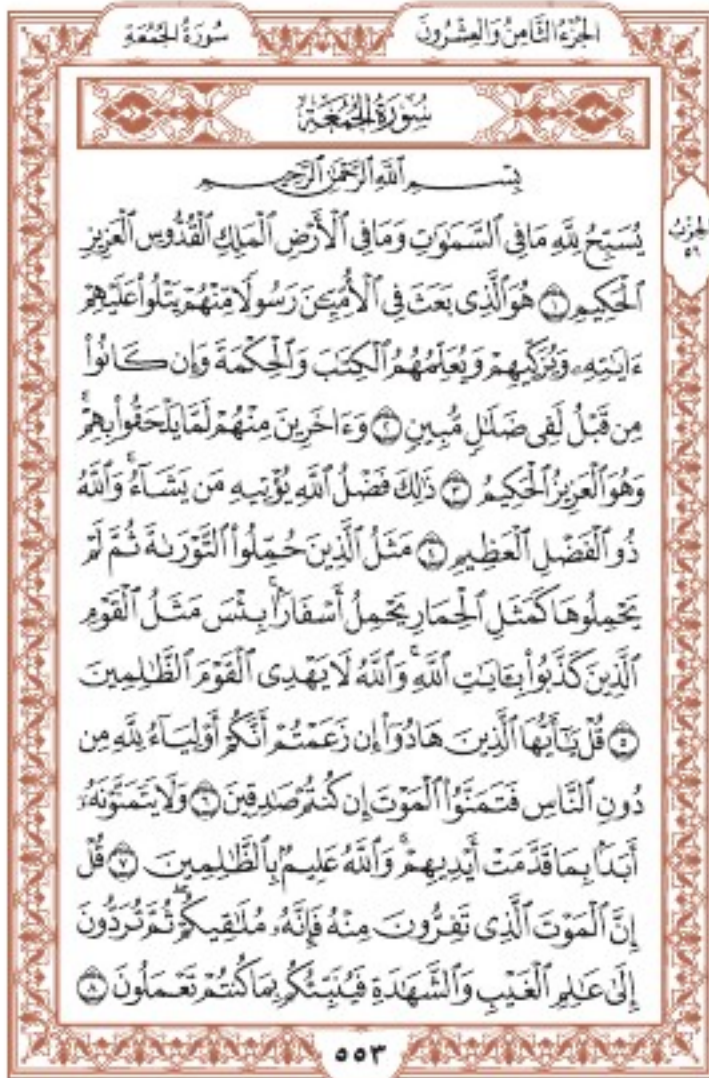 سُورَةُ الْجُمُعَةِ
الْجُزْءُ الثَّامِنُ وَالْعِشْرُونَ
سُورَةُ الْجُمُعَةِ
بِسْمِ ٱللَّهِ ٱلرَّحْمَٰنِ ٱلرَّحِيمِ
يُسَبِّحُ لِلَّهِ مَا فِى ٱلسَّمَٰوَٰتِ وَمَا فِى ٱلْأَرْضِ ٱلْمَلِكِ ٱلْقُدُّوسِ ٱلْعَزِيزِ
ٱلْحَكِيمِ ١ هُوَ ٱلَّذِى بَعَثَ فِى ٱلْأُمِّيِّۦنَ رَسُولًا مِّنْهُمْ يَتْلُوا۟ عَلَيْهِمْ
ءَايَٰتِهِۦ وَيُزَكِّيهِمْ وَيُعَلِّمُهُمُ ٱلْكِتَٰبَ وَٱلْحِكْمَةَ وَإِن كَانُوا۟
مِن قَبْلُ لَفِى ضَلَٰلٍ مُّبِينٍ ٢ وَءَاخَرِينَ مِنْهُمْ لَمَّا يَلْحَقُوا۟ بِهِمْ ۚ
وَهُوَ ٱلْعَزِيزُ ٱلْحَكِيمُ ٣ ذَٰلِكَ فَضْلُ ٱللَّهِ يُؤْتِيهِ مَن يَشَآءُ ۚ وَٱللَّهُ
ذُو ٱلْفَضْلِ ٱلْعَظِيمِ ٤ مَثَلُ ٱلَّذِينَ حُمِّلُوا۟ ٱلتَّوْرَىٰةَ ثُمَّ لَمْ
يَحْمِلُوهَا كَمَثَلِ ٱلْحِمَارِ يَحْمِلُ أَسْفَارًۢا ۚ بِئْسَ مَثَلُ ٱلْقَوْمِ
ٱلَّذِينَ كَذَّبُوا۟ بِـَٔايَٰتِ ٱللَّهِ ۚ وَٱللَّهُ لَا يَهْدِى ٱلْقَوْمَ ٱلظَّٰلِمِينَ
٥ قُلْ يَٰٓأَيُّهَا ٱلَّذِينَ هَادُوٓا۟ إِن زَعَمْتُمْ أَنَّكُمْ أَوْلِيَآءُ لِلَّهِ مِن
دُونِ ٱلنَّاسِ فَتَمَنَّوُا۟ ٱلْمَوْتَ إِن كُنتُمْ صَٰدِقِينَ ٦ وَلَا يَتَمَنَّوْنَهُۥٓ
أَبَدًۢا بِمَا قَدَّمَتْ أَيْدِيهِمْ ۚ وَٱللَّهُ عَلِيمٌۢ بِٱلظَّٰلِمِينَ ٧ قُلْ
إِنَّ ٱلْمَوْتَ ٱلَّذِى تَفِرُّونَ مِنْهُ فَإِنَّهُۥ مُلَٰقِيكُمْ ۖ ثُمَّ تُرَدُّونَ
إِلَىٰ عَٰلِمِ ٱلْغَيْبِ وَٱلشَّهَٰدَةِ فَيُنَبِّئُكُم بِمَا كُنتُمْ تَعْمَلُونَ ٨
الحِزْبُ
٥٦
٥٥٣